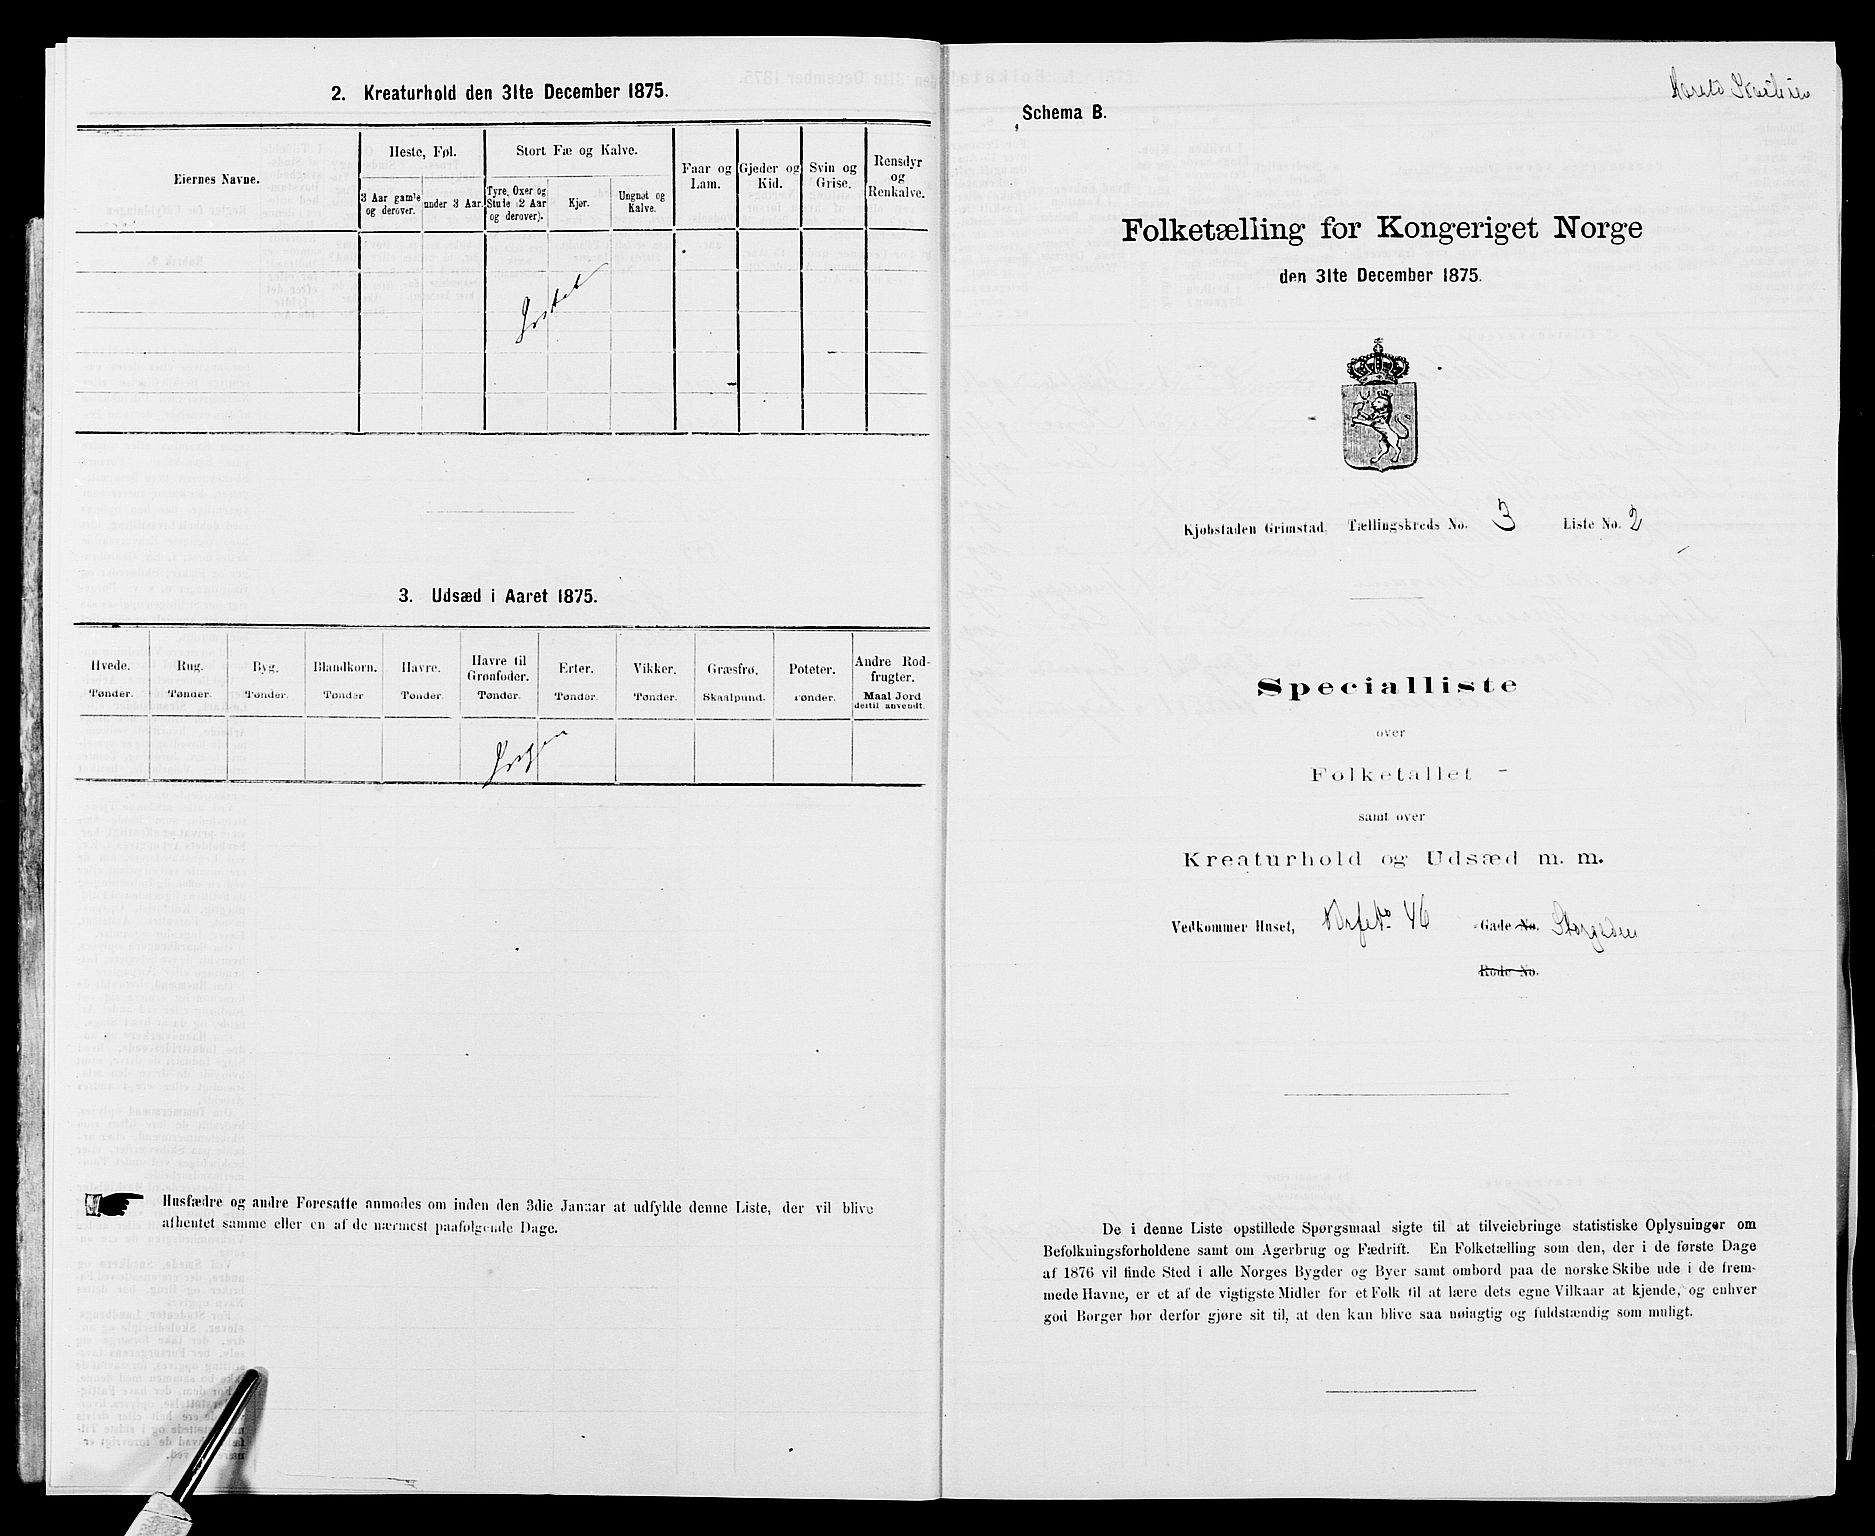 2. Kreaturhold den 31te December 1875.
Eiernes Navne.
Heste, Føl.
3 Aar gamle og derover.
under 3 Aar.
Stort Fæ og Kalve.
Tyre, Oxer og Stute (2 Aar og derover).
Kjør.
Ungnøt og Kalve.
Faar og Lam.
Gjeder og Kid.
Svin og Grise.
Rensdyr og Renkalve.
3. Udsæd i Aaret 1875.
Hvede. Tønder.
Rug. Tønder.
Byg. Tønder.
Blandkorn. Tønder
Havre. Tønder.
Havre til Grønfoder. Tønder.
Erter. Tønder.
Vikker. Tønder.
Græsfrø. Skaalpund.
Poteter. Tønder.
Andre Rodfrugter. Maal Jord dertil anvendt.
Husfædre og andre Foresatte anmodes om inden den 3die Januar at udfylde denne Liste, der vil blive
afhentet samme eller en af de nærmest paafølgende Dage.
Schema B.
Folketælling for Kongeriget Norge
den 31te December 1875.
Kjøbstaden Grimstad, Tællingskreds No. 3 Liste No. 2
Specialliste
over
Folketallet
samt over
Kreaturhold og Udsæd m. m.
Vedkommer Huset, 46 Gade No. Storgaden
Rode No.
De i denne Liste opstillede Spørgsmaal sigte til at tilveiebringe statistiske Oplysninger om
Befolkningsforholdene samt om Agerbrug og Fædrift. En Folketælling som den, der i de første Dage
af 1876 vil finde Sted i alle Norges Bygder og Byer samt ombord paa de norske Skibe ude i de frem-
mede Havne, er et af de vigtigste Midler for et Folk til at lære dets egne Vilkaar at kjende, og enhver
god Borger bør derfor gjøre sit til, at den kan blive saa nøiagtig og fuldstændig som muligt.